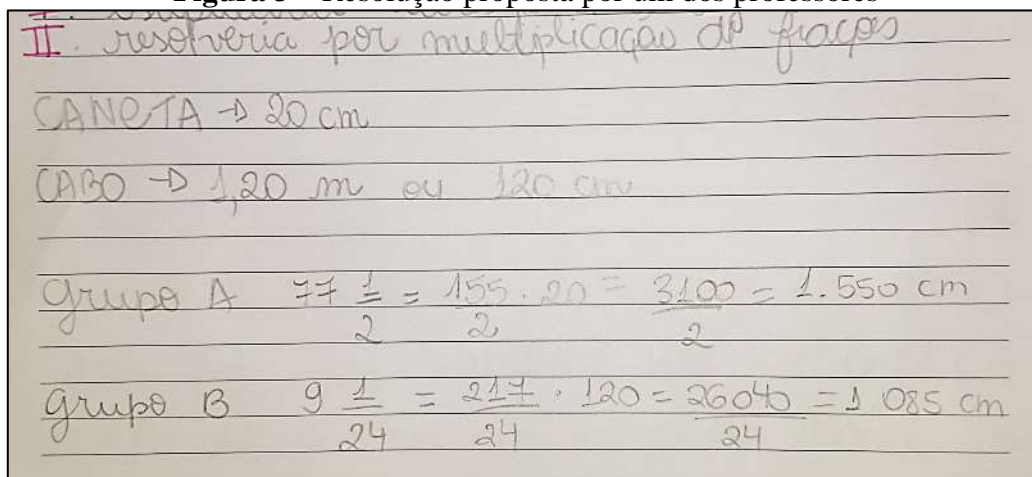 Figura 3 – Resolução proposta por um dos professores
II. resolveria por multiplicação de fraços
CANETA → 20 cm
CABO → 1,20 m ou 120 cm
Grupo A 77 1/2 = 155/2 . 20 = 3100/2 = 1.550 cm
Grupo B 9 1/24 = 217/24 . 120 = 26040/24 = 1 085 cm